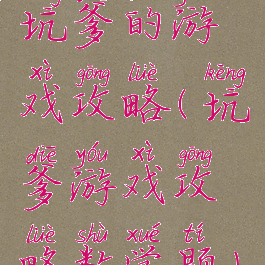 坑爹的游
xì gōng lüè kēng
戏攻略(坑
diē yóu xì gōng
爹游戏攻
lüè shù xué tí
略数学题)